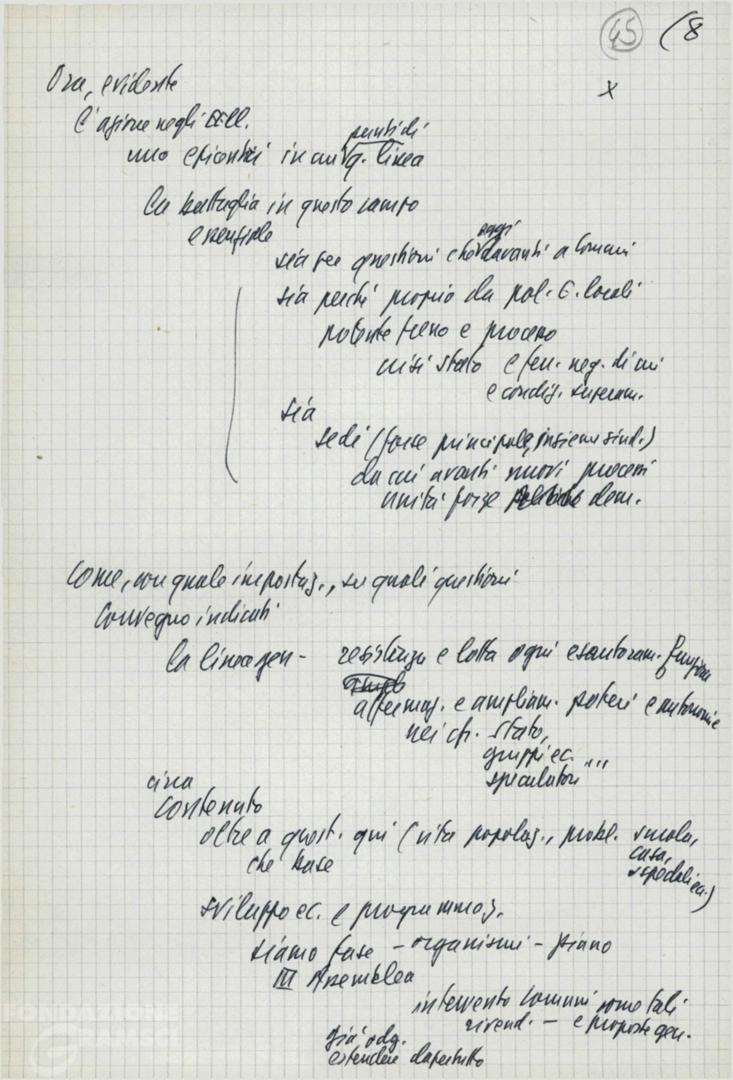 45 (8
x
Ora, evidente
l'azione negli EE.LL.
uno in cui punti di q. linea
la battaglia in questo campo
essenziale
sia per questioni che oggi davanti a Comuni
sia perché proprio da pol. E. locali
potente freno e processo
crisi stato e fen. neg. di cui
e condiz. superam.
sia
sedi (forse principale, insieme sind.)
da cui avanti nuovi processi
unità forze dem.
Come, con quale impostaz., su quali questioni
Convegno indicati
la linea gen - resistenza e lotta ogni esautoram. funzioni
affermaz. e ampliam. poteri e autonomie
nei cfr. stato,
gruppi ec. "
speculatori
circa
contenuto
oltre a quest. qui (vita popolaz., probl. scuola,
che base casa,
ospedali ecc.)
sviluppo ec. e programmaz.
siamo fase - organismi - piano
III Assemblea
intervento Comuni come tali
rivend. - e proposte gen.
già odg.
estendere dapertutto
FONDAZIONE
GRAMSCI